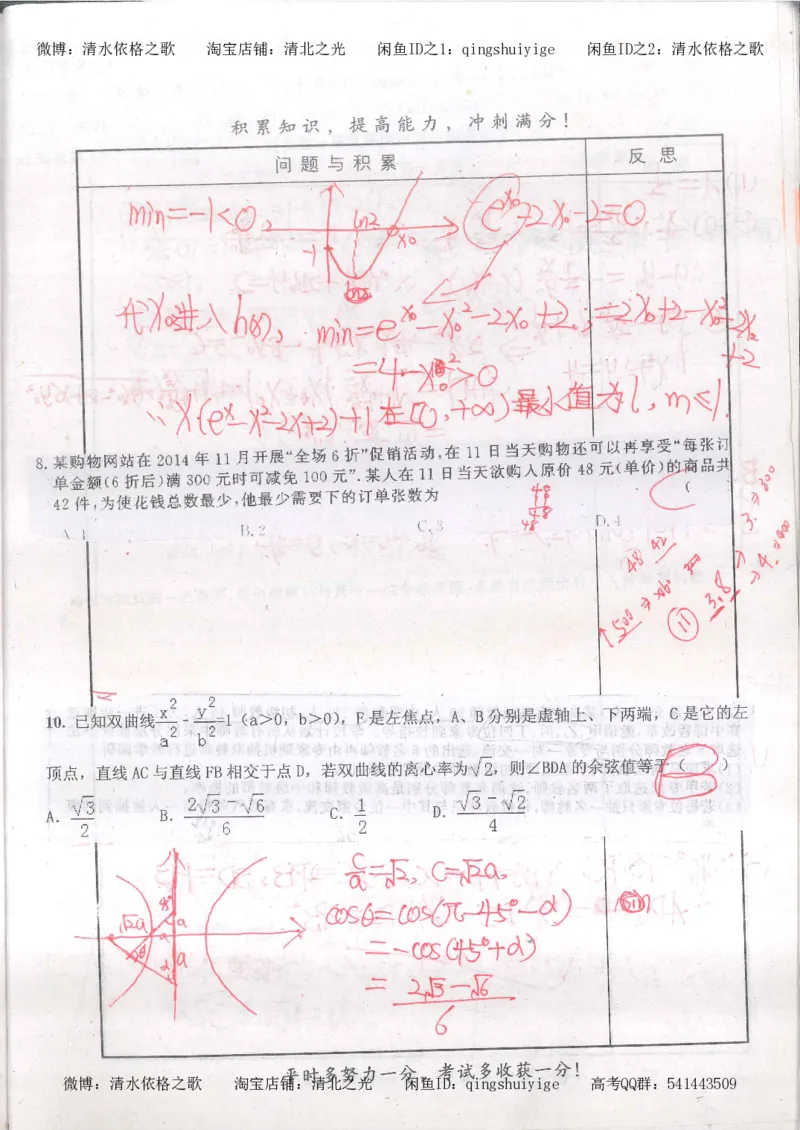 微博：清水依格之歌 淘宝店铺：清北之光 闲鱼ID之1：qingshuiyige 闲鱼ID之2：清水依格之歌
积累知识，提高能力，冲刺满分！
问题与积累 反思
min=-1<0 ln2 x₀ e^x₀-2x₀-2=0
-1
ln2
代x₀进入h(x), min=e^x₀-x₀²-2x₀+2, =2x₀+2-x₀²-2x₀+2
=4-x₀²>0
∵x(e^x-x²-2x+2)+1在[0,+∞)最小值为1, m≤1.
8.某购物网站在2014年11月开展“全场6折”促销活动,在11日当天购物还可以再享受“每张订
单金额(6折后)满300元时可减免100元”.某人在11日当天欲购入原价48元(单价)的商品共
42件,为使花钱总数最少,他最少需要下的订单张数为 ( C
A.1 B.2 C.3 D.4
48 42
500 11 3.8
10. 已知双曲线x²/a²-y²/b²=1（a>0，b>0），F是左焦点，A、B分别是虚轴上、下两端，C是它的左
顶点，直线AC与直线FB相交于点D，若双曲线的离心率为√2，则∠BDA的余弦值等于（ B ）
A. √3/2 B. (2√3-√6)/6 C. 1/2 D. (√3-√2)/4
c/a=√2, c=√2a,
cosθ=cos(π-45°-α)
=-cos(45°+α)
=(2√3-√6)/6
45° √2a a a θ α a
sin
平时多努力一分，考试多收获一分！
微博：清水依格之歌 淘宝店铺：清北之光 闲鱼ID：qingshuiyige 高考QQ群：541443509